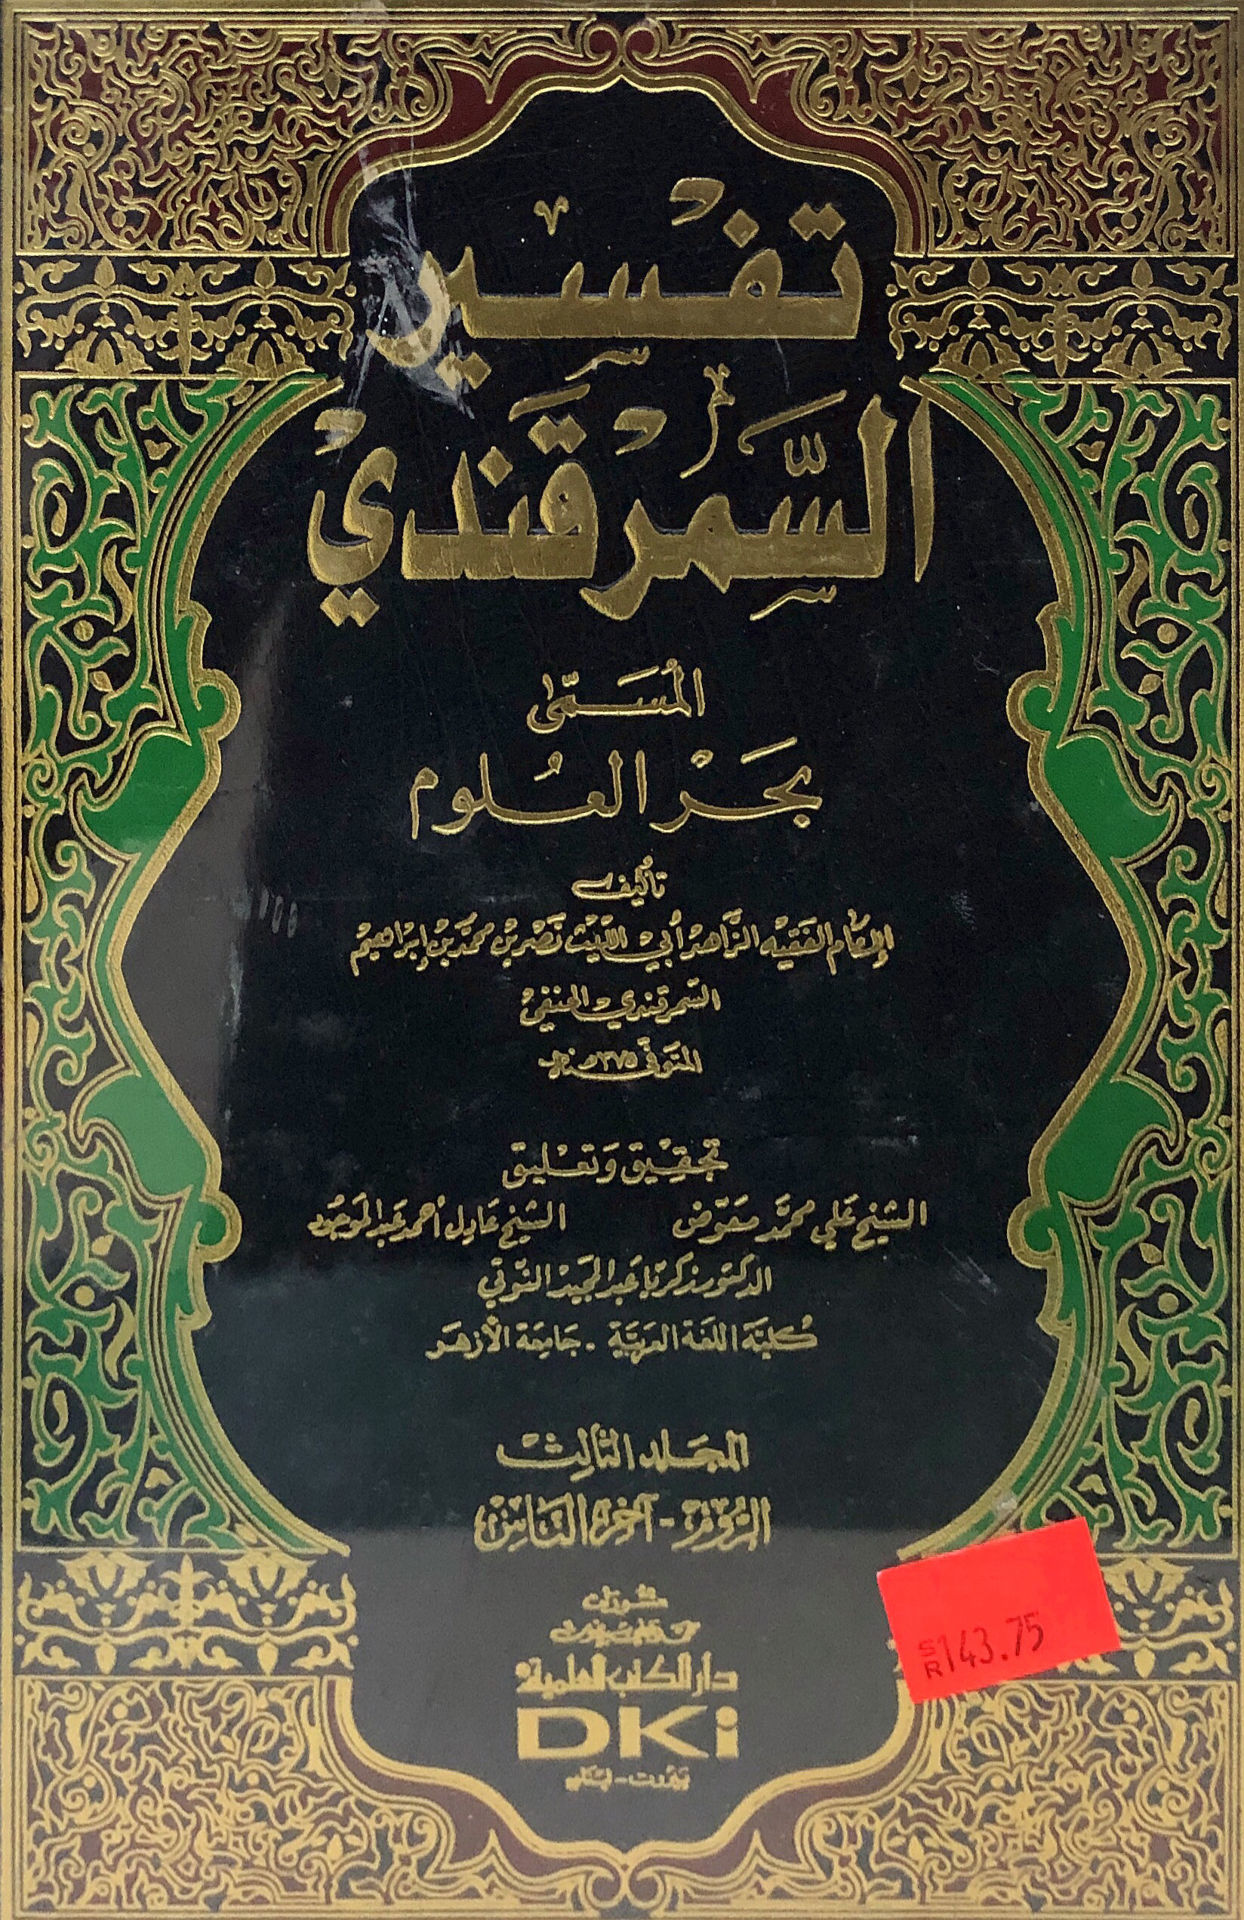 تفسير
السمرقندي
المسمى
بحر العلوم
تأليف
الإمام الفقيه الزاهد أبي الليث نصر بن محمد بن إبراهيم
السمرقندي الحنفي
المتوفى ٣٧٥ هـ
تحقيق وتعليق
الشيخ علي محمد معوض الشيخ عادل أحمد عبد الموجود
الدكتور زكريا عبد المجيد النوتي
كلية اللغة العربية - جامعة الأزهر
المجلد الثالث
الروم - آخر الناس
منشورات
محمد علي بيضون
دار الكتب العلمية
DKi
بيروت - لبنان
SR 143.75